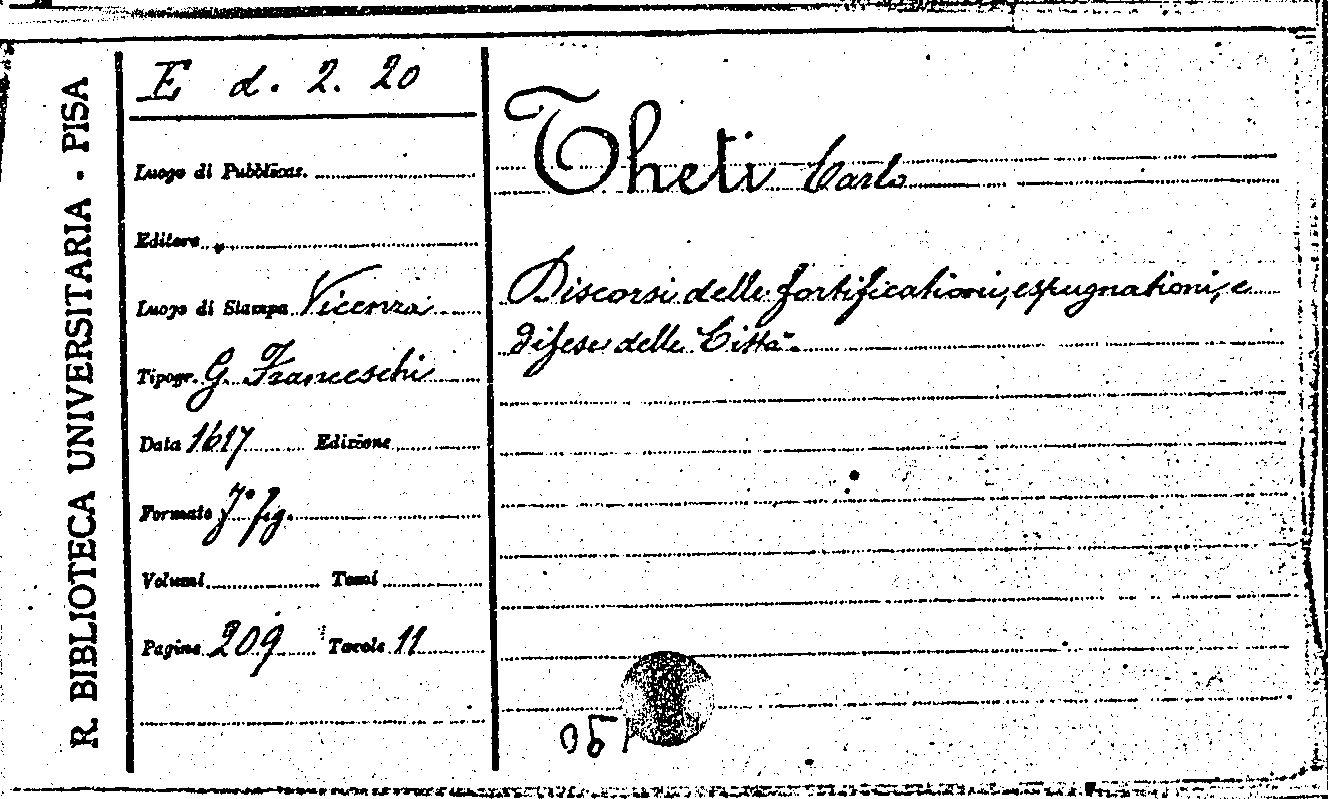 R. BIBLIOTECA UNIVERSITARIA - PISA
E d. 2. 20
Luogo di Pubblicaz.
Editore
Luogo di Stampa Vicenza
Tipogr. G. Franceschi
Data 1617 Edizione
Formato fig.
Volumi Tomi
Pagine 209 Tavole 11
Theti Carlo
Discorsi delle fortificationi, espugnationi, e
difese delle Città.